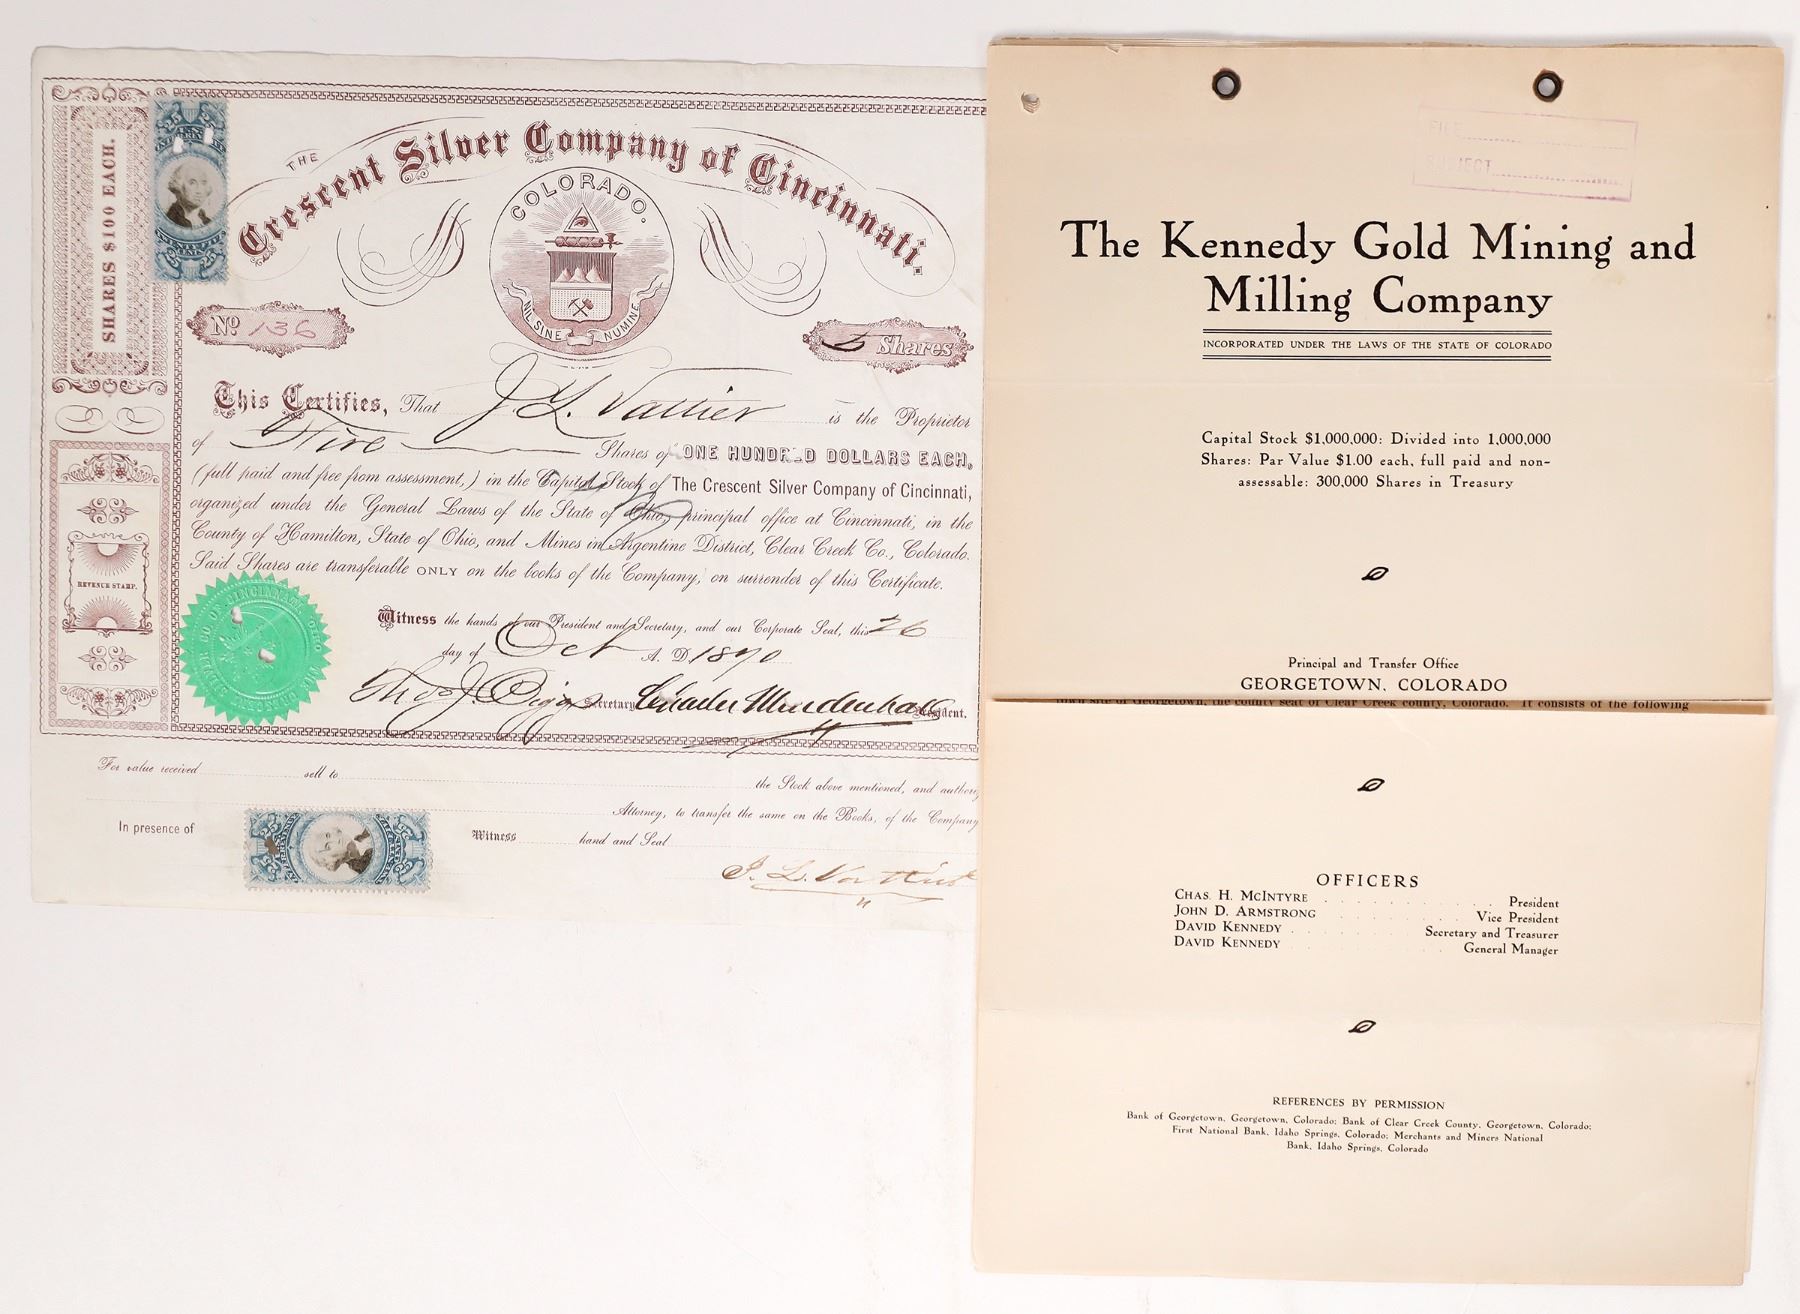 THE
Crescent Silver Company of Cincinnati.
SHARES $100 EACH.
COLORADO.
NIL SINE NUMINE
No 136
5 Shares
This Certifies, That J. L. Vattier is the Proprietor
of Five Shares of ONE HUNDRED DOLLARS EACH,
(full paid and free from assessment,) in the Capital Stock of The Crescent Silver Company of Cincinnati,
organized under the General Laws of the State of Ohio, principal office at Cincinnati, in the
County of Hamilton, State of Ohio, and Mines in Argentine District, Clear Creek Co., Colorado.
Said Shares are transferable ONLY on the books of the Company, on surrender of this Certificate.
REVENUE STAMP.
Witness the hands of our President and Secretary, and our Corporate Seal, this 26
day of Oct A. D. 1870
Secretary President.
For value received sell to
the Stock above mentioned, and authorize
Attorney, to transfer the same on the Books, of the Company
In presence of
Witness hand and Seal
J. L. Vattier
FILE
SUBJECT
The Kennedy Gold Mining and
Milling Company
INCORPORATED UNDER THE LAWS OF THE STATE OF COLORADO
Capital Stock $1,000,000: Divided into 1,000,000
Shares: Par Value $1.00 each, full paid and non-
assessable: 300,000 Shares in Treasury
Principal and Transfer Office
GEORGETOWN, COLORADO
of Georgetown, the county seat of Clear Creek county, Colorado. It consists of the following
OFFICERS
CHAS. H. MCINTYRE President
JOHN D. ARMSTRONG Vice President
DAVID KENNEDY Secretary and Treasurer
DAVID KENNEDY General Manager
REFERENCES BY PERMISSION
Bank of Georgetown, Georgetown, Colorado; Bank of Clear Creek County, Georgetown, Colorado;
First National Bank, Idaho Springs, Colorado; Merchants and Miners National
Bank, Idaho Springs, Colorado